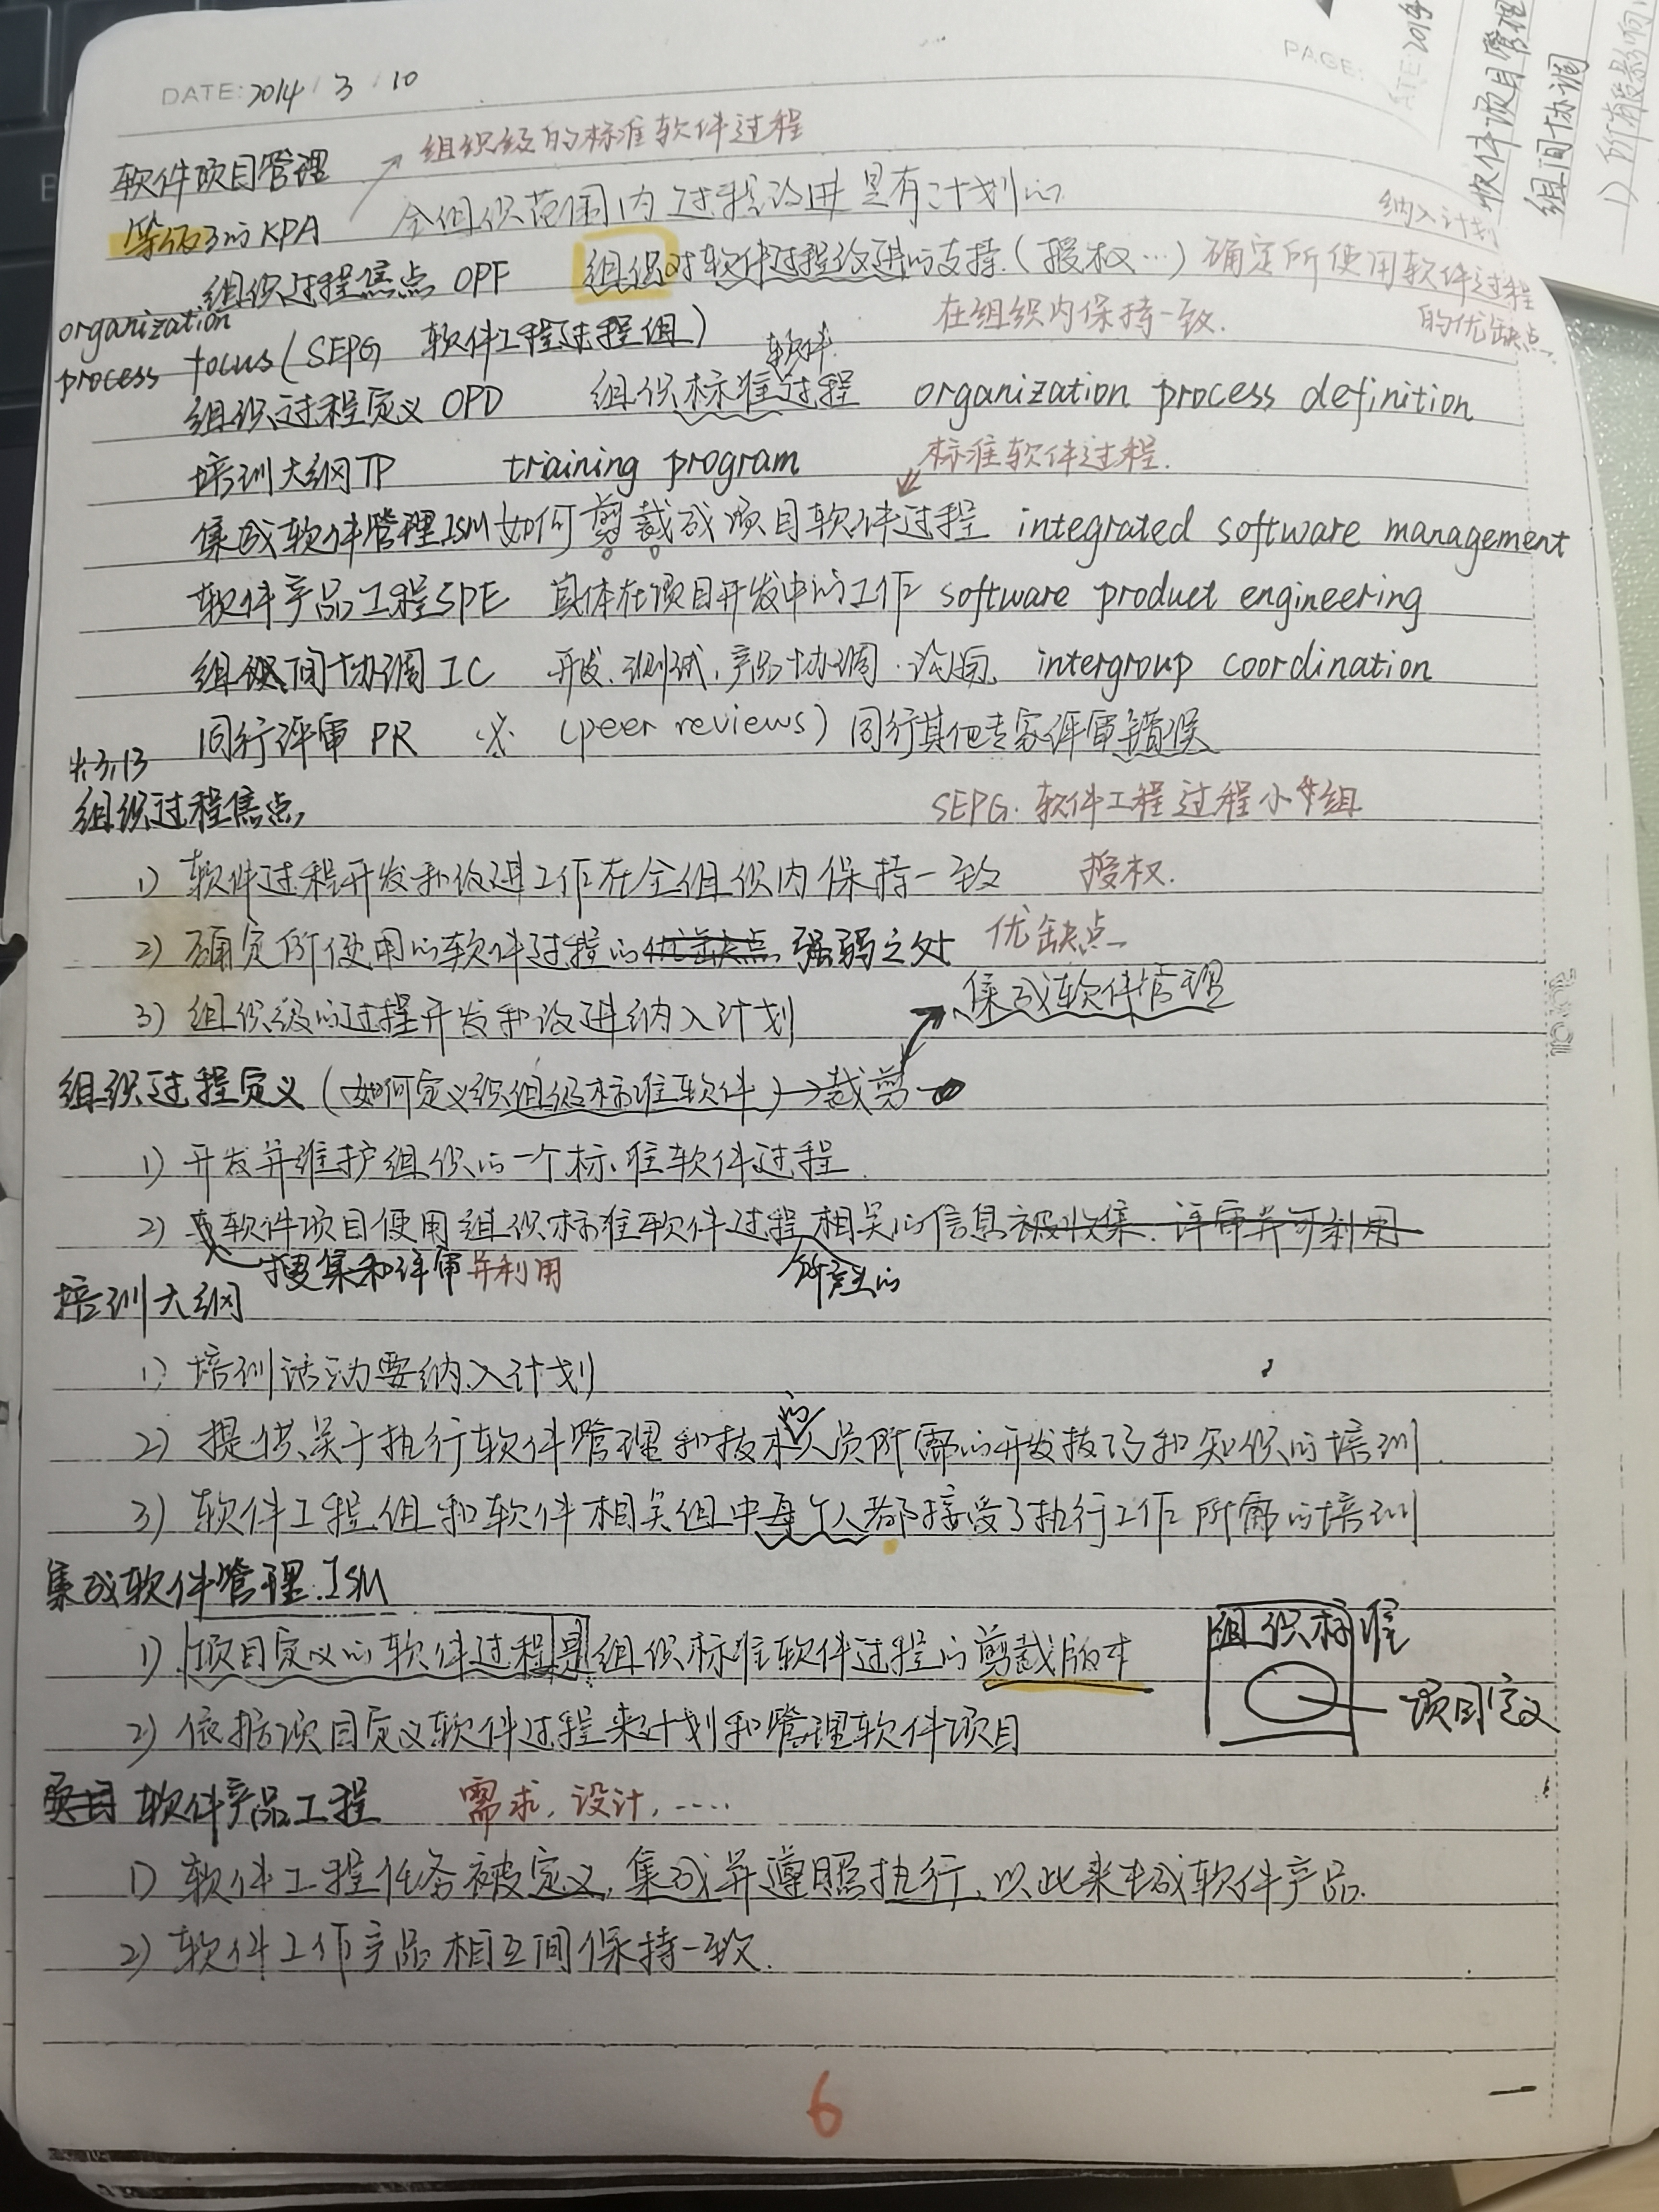 DATE: 2014 / 3 / 10
PAGE:
组织级的标准软件过程
软件项目管理
等级3的KPA 全组织范围内过程改进是有计划的
纳入计划
组织过程焦点 OPF 组织对软件过程改进的支持.(授权…) 确定所使用软件过程的优缺点
organization process focus (SEPG 软件工程过程组) 在组织内保持一致.
组织过程定义 OPD 组织标准软件过程 organization process definition
培训大纲TP training program 标准软件过程.
集成软件管理ISM 如何剪裁成项目软件过程 integrated software management
软件产品工程SPE 具体在项目开发中的工作 software product engineering
组织间协调IC 开发.测试.产品协调. intergroup coordination
同行评审 PR (peer reviews) 同行其他专家评审错误
4.3.13
组织过程焦点 SEPG. 软件工程过程小组
1) 软件过程开发和改进工作在全组织内保持一致 授权.
2) 确定所使用的软件过程的优缺点 强弱之处 优缺点
3) 组织级的过程开发和改进纳入计划 集成软件管理
组织过程定义 (如何定义组织级标准软件) → 裁剪
1) 开发并维护组织的一个标准软件过程.
2) 软件项目使用组织标准软件过程相关的信息被收集.评审并可利用
搜集和评审并利用 所产生的
培训大纲
1) 培训活动要纳入计划
2) 提供关于执行软件管理和技术的人员所需的开发技巧和知识的培训.
3) 软件工程组和软件相关组中每个人都接受了执行工作所需的培训
集成软件管理.ISM
1) 项目定义的软件过程是组织标准软件过程的剪裁版本
组织标准
项目定义
2) 依据项目定义软件过程来计划和管理软件项目
项目 软件产品工程 需求,设计,……
1) 软件工程任务被定义,集成并遵照执行,以此来生成软件产品.
2) 软件工作产品相互间保持一致.
6
软件项目管理
组间协调